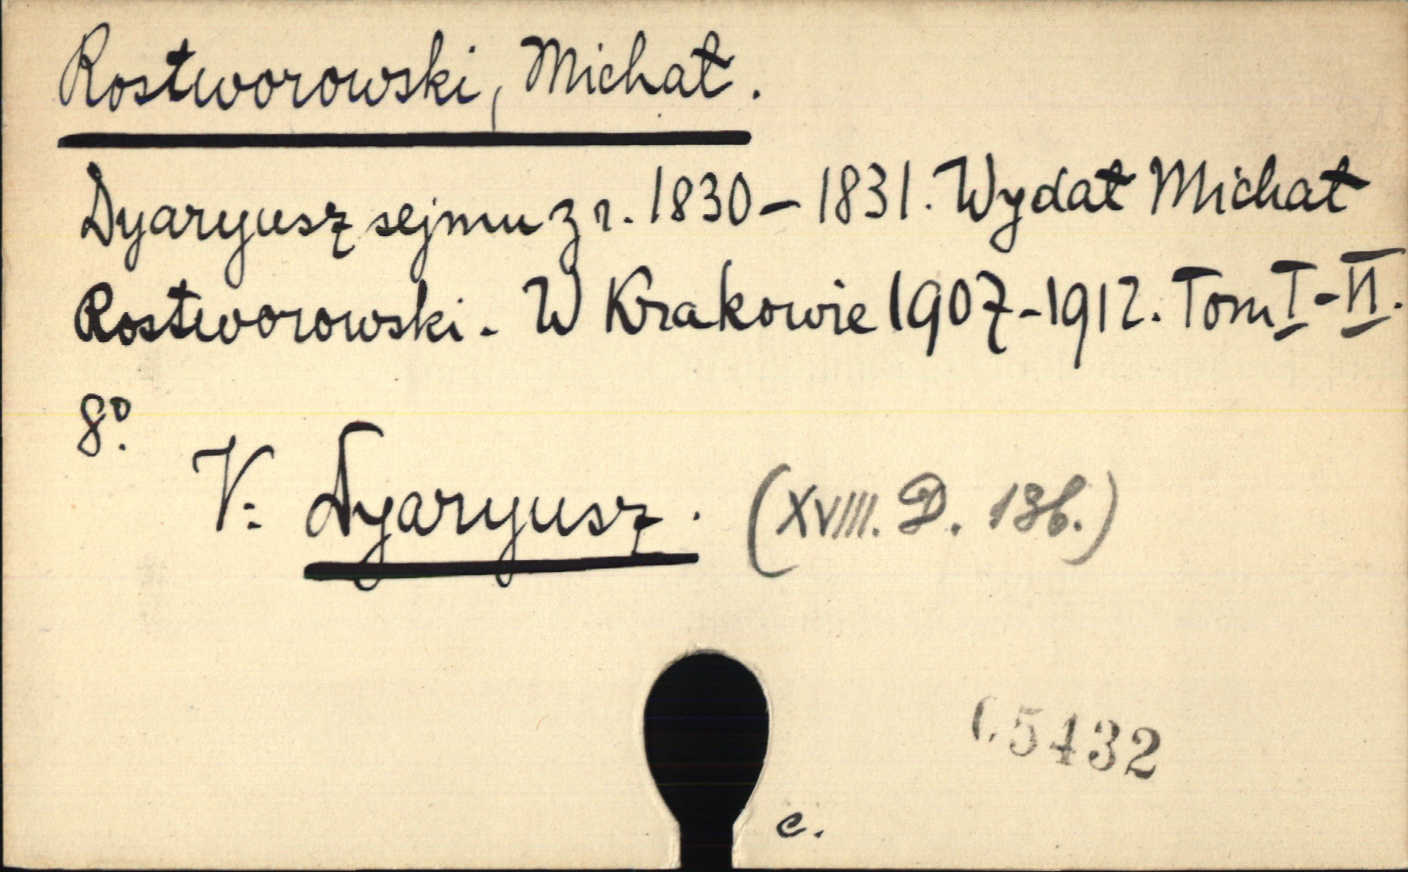 Rostworowski, Michał.
Dyaryusz sejmu z r. 1830 - 1831. Wydał Michał
Rostworowski. - W Krakowie 1907-1912. Tom I-II.
8º.
V: Dyaryusz. (XVIII. D. 136.)
5432
c.